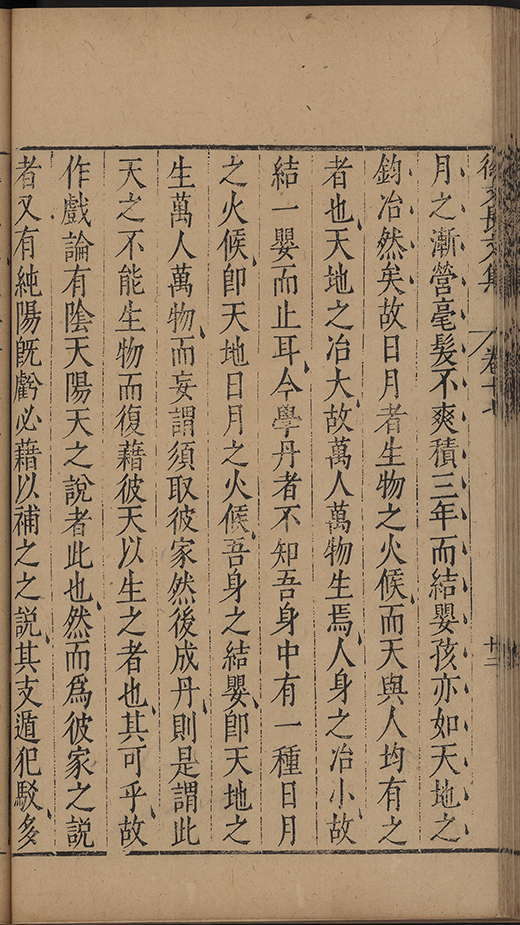 徐文長文集 卷十七 十二
月之漸營毫髮不爽積三年而結嬰孩亦如天地之
鈞冶然矣故日月者生物之火候而天與人均有之
者也天地之冶大故萬人萬物生焉人身之冶小故
結一嬰而止耳今學丹者不知吾身中有一種日月
之火候卽天地日月之火候吾身之結嬰卽天地之
生萬人萬物而妄謂須取彼家然後成丹則是謂此
天之不能生物而復藉彼天以生之者也其可乎故
作戲論有陰天陽天之說者此也然而爲彼家之說
者又有純陽旣虧必藉以補之之說其支遁犯駁多